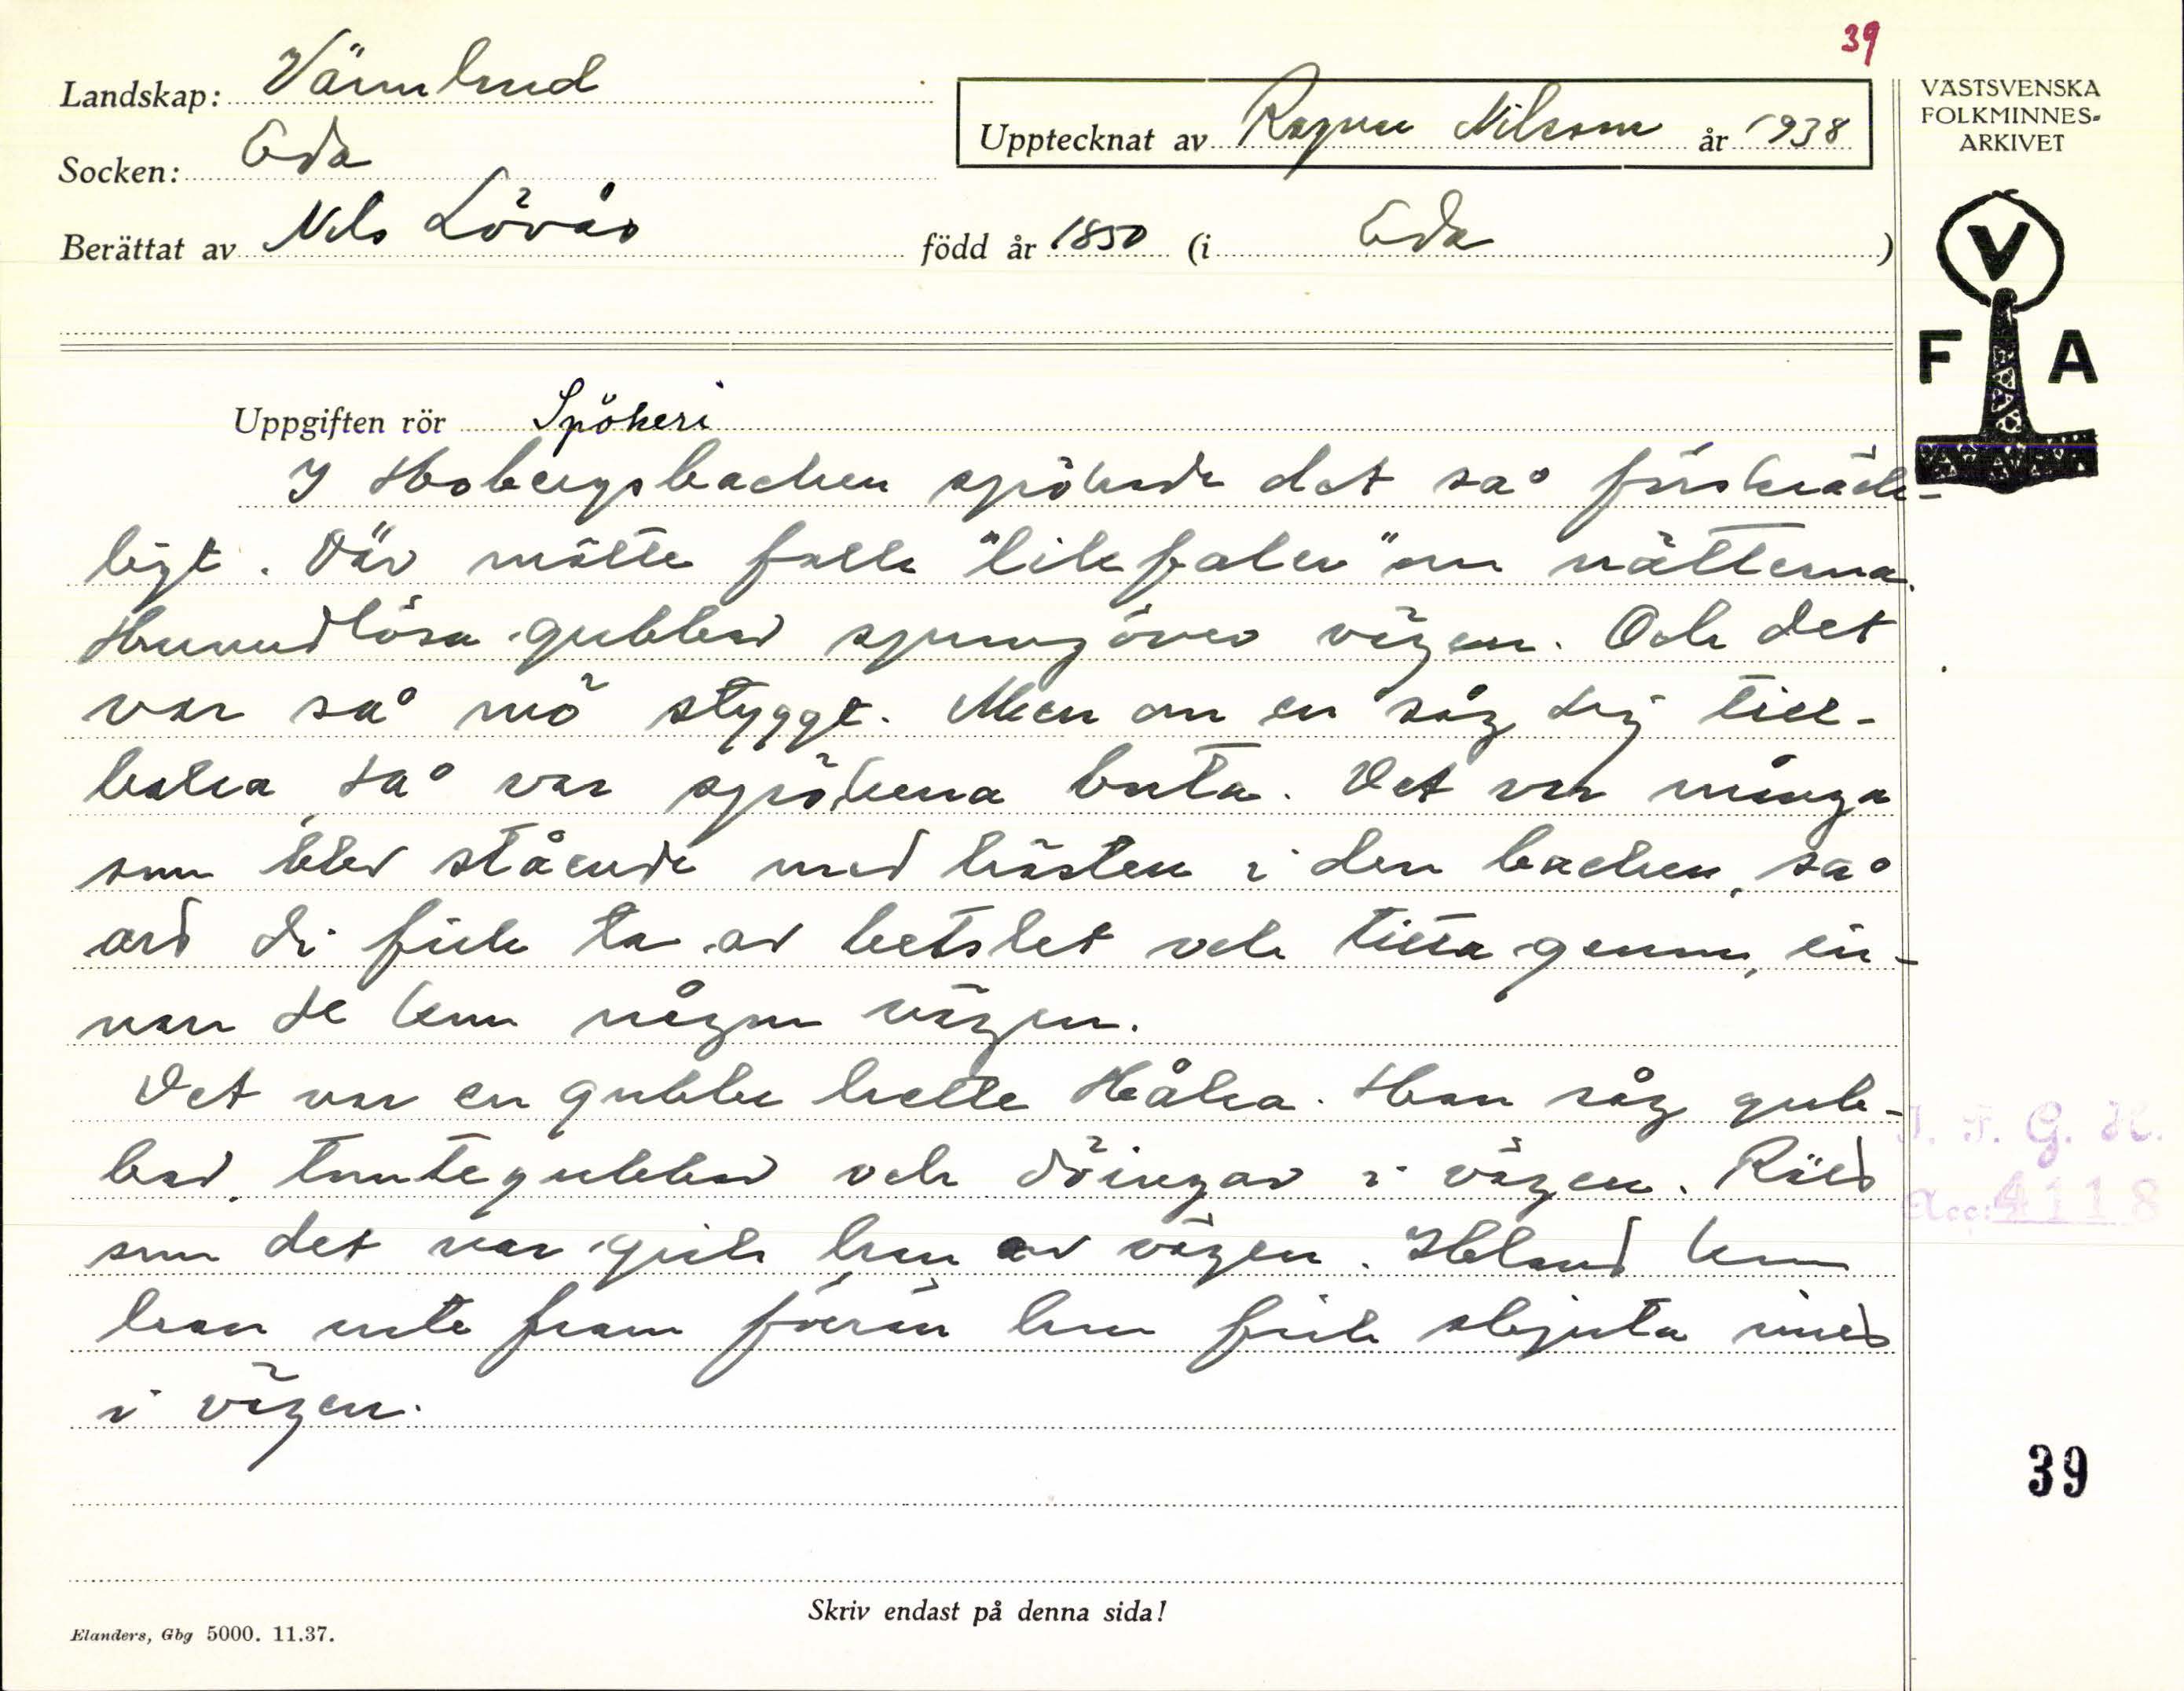 39
Landskap: Värmland
Upptecknat av Ragnar Nilsson år 1938
VÄSTSVENSKA
FOLKMINNES-
ARKIVET
Socken: Eda
Berättat av Nils Lövås född år 1850 (i Eda)
V
F A
Uppgiften rör Spökeri
I Hobergsbacken spökade det så förskräck-
ligt. Där mötte folk "likfaler" om nätterna.
Huvudlösa gubbar sprung över vägen. Och det
var så mö styggt. Men om en såg sej till-
baka så var spökena borta. Det var många
som blev stående med hästen i den backen, så
att di fick ta av betslet och titta genom, in-
nan de kom någon vägen.
Det var en gubbe hette Håka. Han såg gub-
bar, tomtegubbar och döingar i vägen. Rätt
som det var gick han av vägen. Ibland kom
han inte fram förrän han fick skjuta mitt
i vägen.
J. F. G. H.
Acc: 4118
39
Skriv endast på denna sida!
Elanders, Gbg 5000. 11.37.